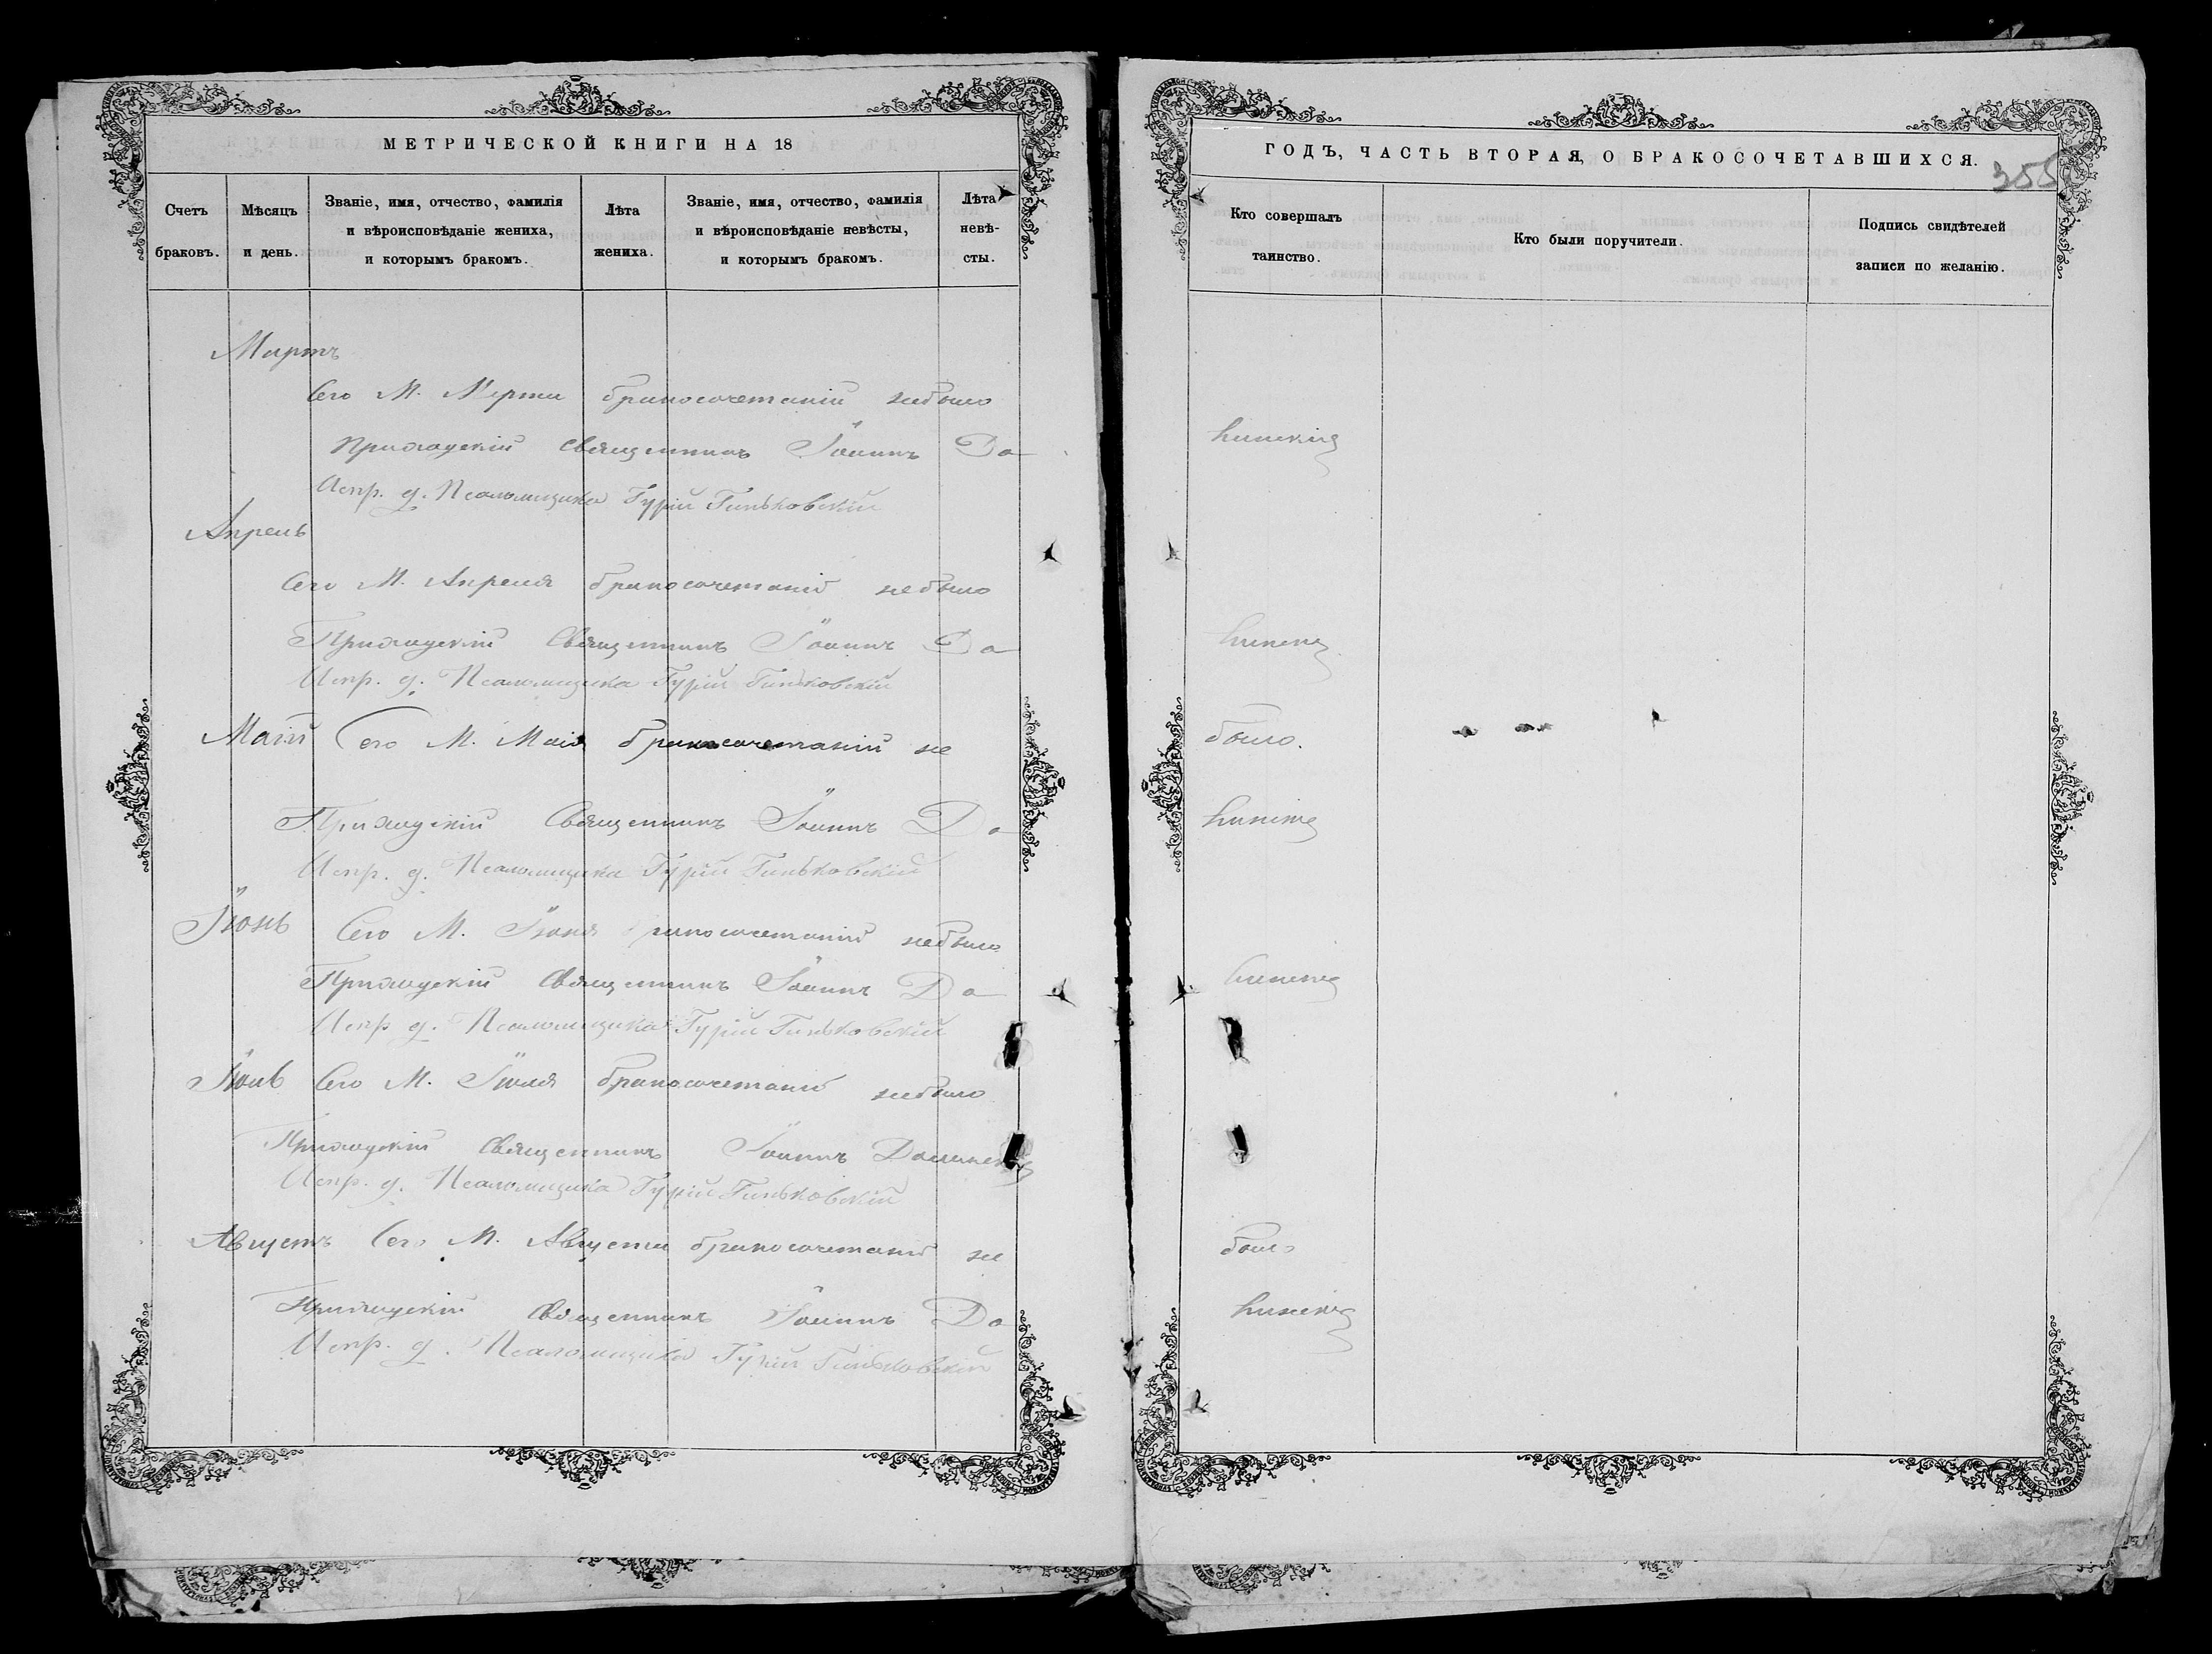 МЕТРИЧЕСКОЙ КНИГИ НА 18
Счетъ браковъ.
Мѣсяцъ и день.
Званіе, имя, отчество, фамилія и вѣроисповѣданіе жениха, и которымъ бракомъ.
Лѣта жениха.
Званіе, имя, отчество, фамилія и вѣроисповѣданіе невѣсты, и которымъ бракомъ.
Лѣта невѣ-сты.
Мартъ
Сего М. Марта бракосочетаній небыло
Приходскій Священникъ Іоаннъ До
Испр. д. Псаломщика Гурій Гиньковскій
Апрель
Сего М. Апреля бракосочетаній небыло
Приходскій Священникъ Іоаннъ До
Испр. д. Псаломщика Гурій Гиньковскій
Маій Сего М. Маія бракосочетаній не
Приходскій Священникъ Іоаннъ До
Испр. д. Псаломщика Гурій Гиньковскій
Іюнь Сего М. Іюня бракосочетаній небыло
Приходскій Священникъ Іоаннъ До
Испр. д. Псаломщика Гурій Гиньковскій
Іюль Сего М. Іюля бракосочетаній небыло
Приходскій Священникъ Іоаннъ
Испр. д. Псаломщика Гурій Гиньковскій
Августъ Сего М. Августа бракосочетаній не
Приходскій Священникъ Іоаннъ До
Испр. д. Псаломщика Гурій Гиньковскій
ГОДЪ, ЧАСТЬ ВТОРАЯ, О БРАКОСОЧЕТАВШИХСЯ.
355
Кто совершалъ таинство.
Кто были поручители.
Подпись свидѣтелей записи по желанію.
было.
было